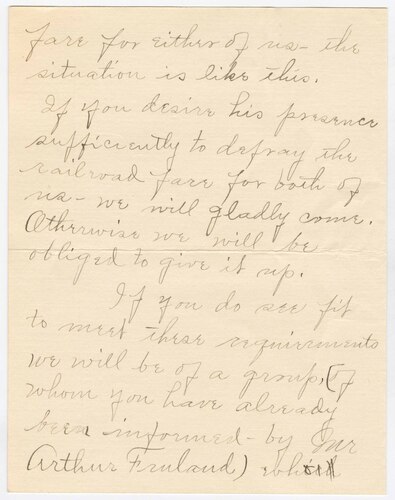 fare for either of us - the
situation is like this.
If you desire his presence
sufficiently to defray the
railroad fare for both of
us - we will gladly come.
Otherwise we will be
obliged to give it up.
If you do see fit
to meet these requirements
we will be of a group, (of
whom you have already
been informed - by Mr
Arthur Fruland)